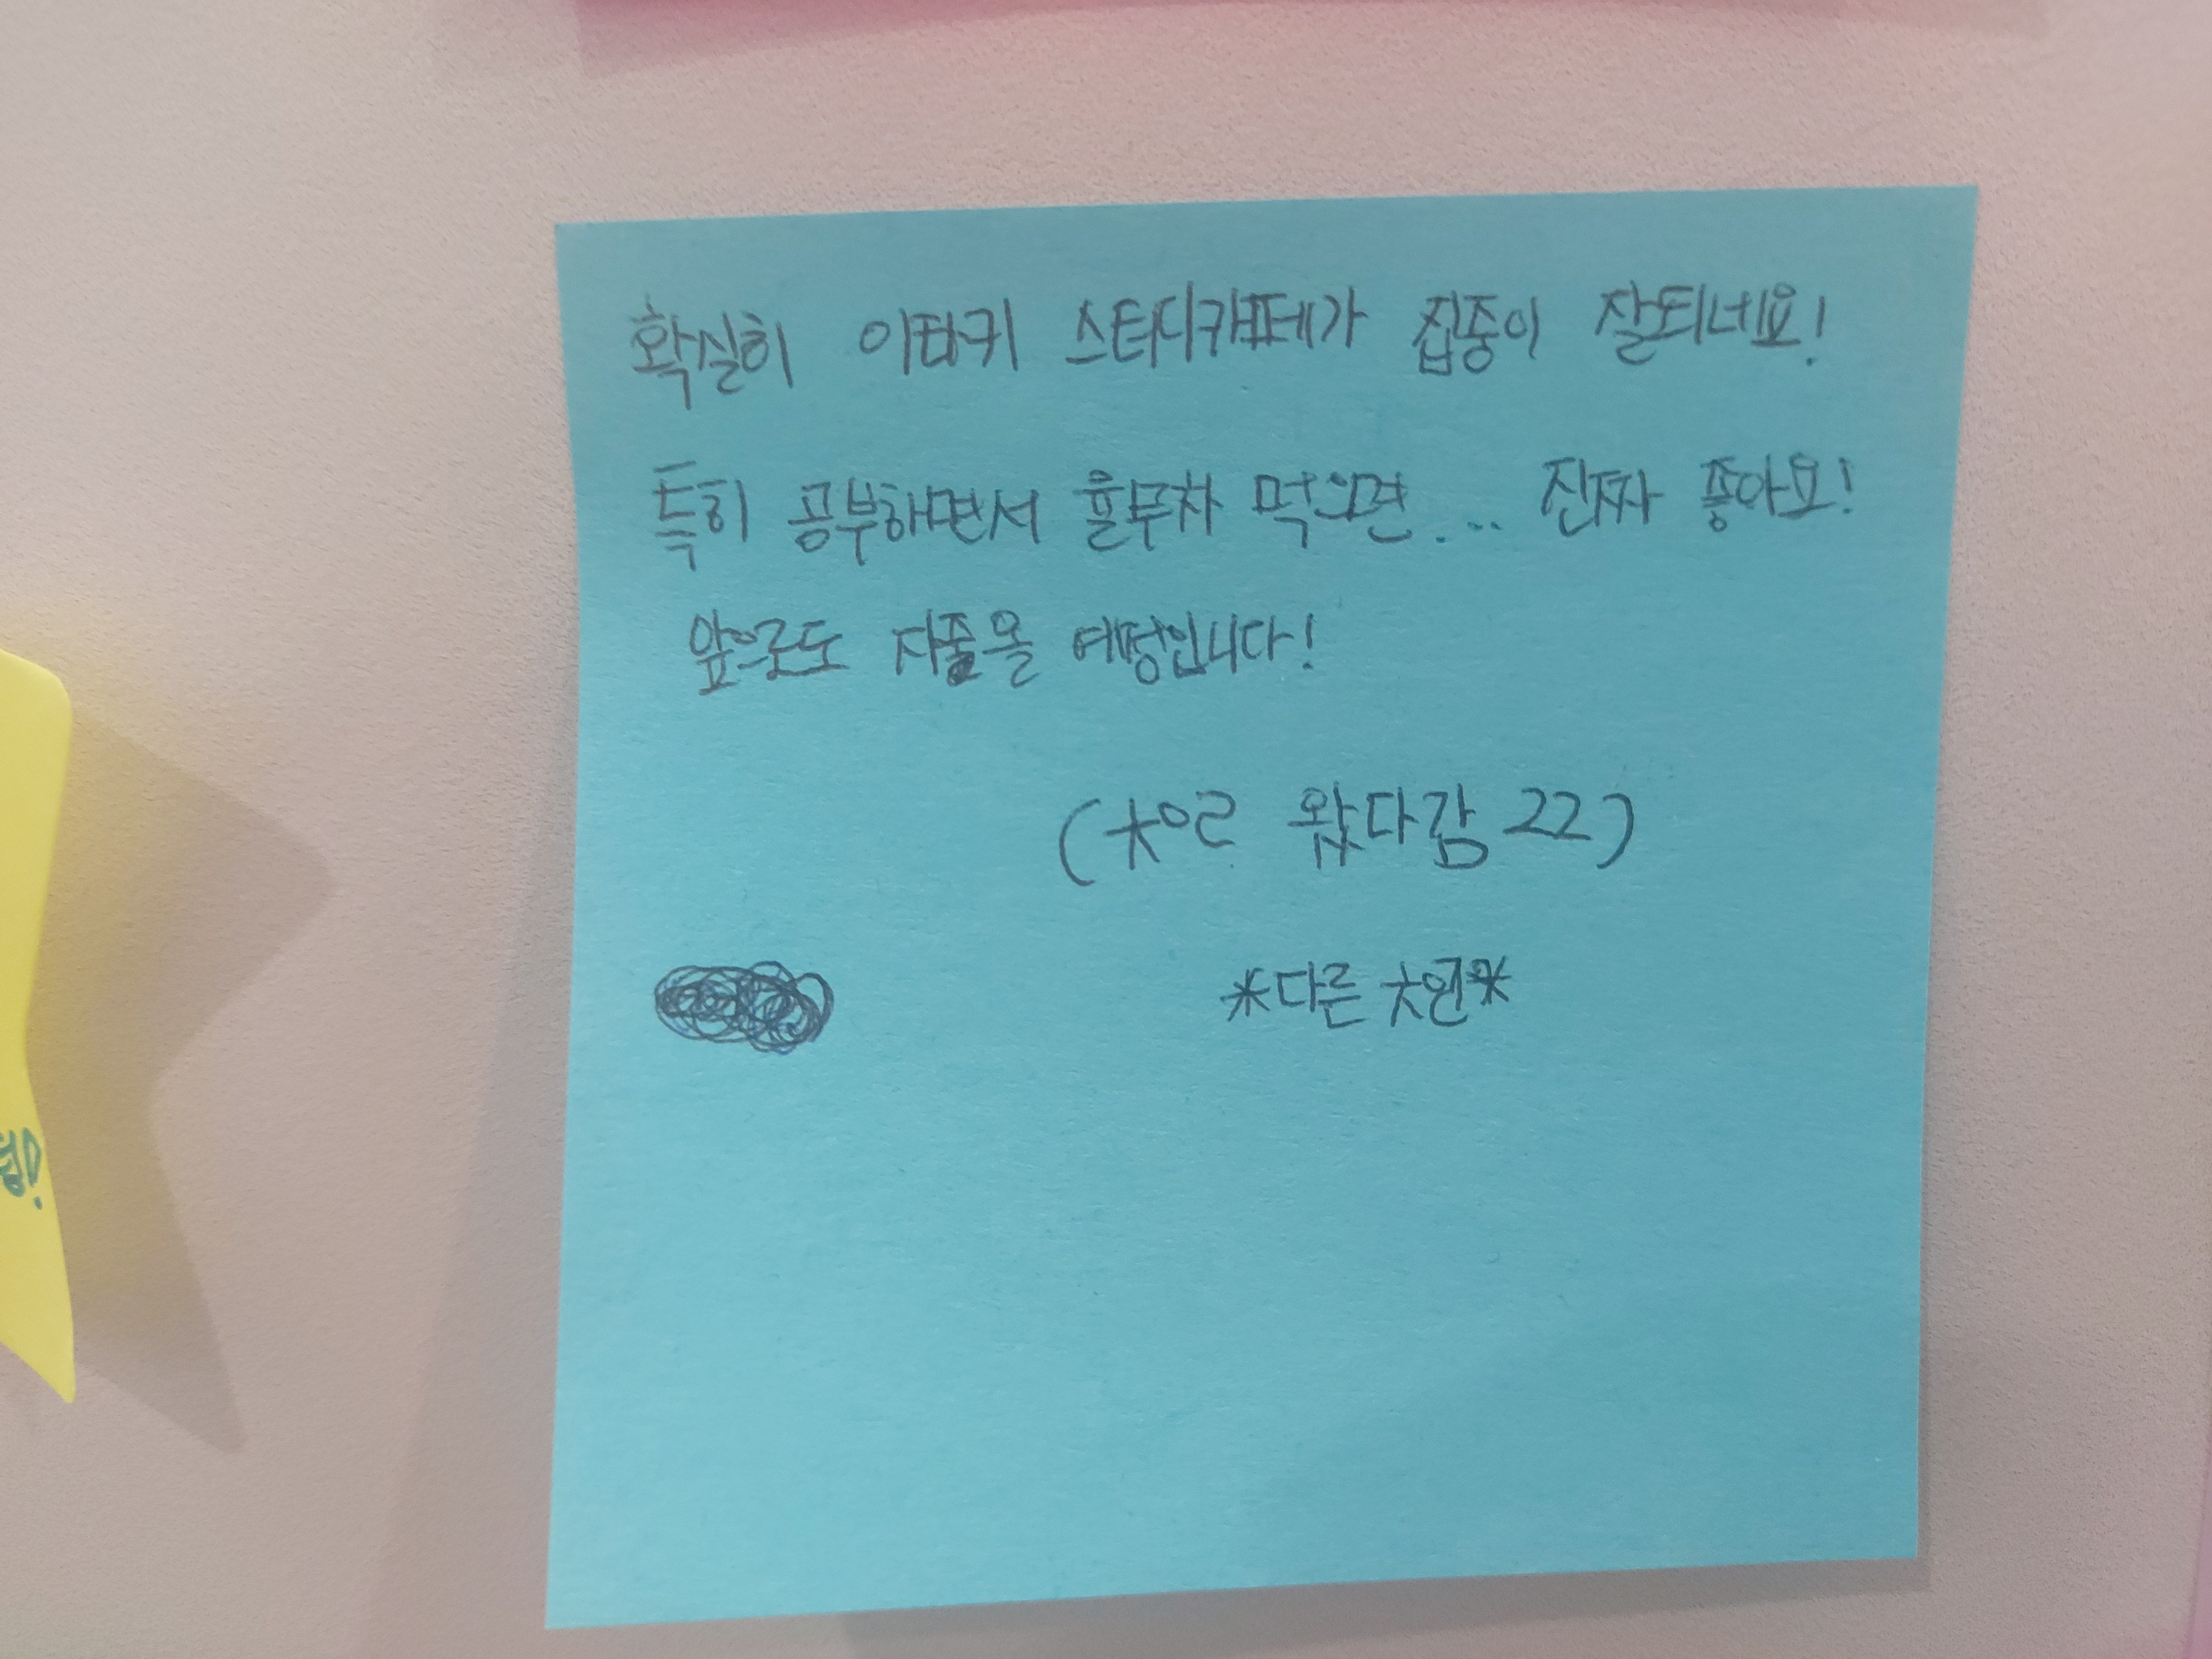 확실히 이타키 스터디카페가 집중이 잘되네요!
특히 공부하면서 율무차 먹으면... 진짜 좋아요!
앞으로도 자주올 예정입니다!
(ㅊㅇㄹ 왔다감 22)
*다른 ㅊ*